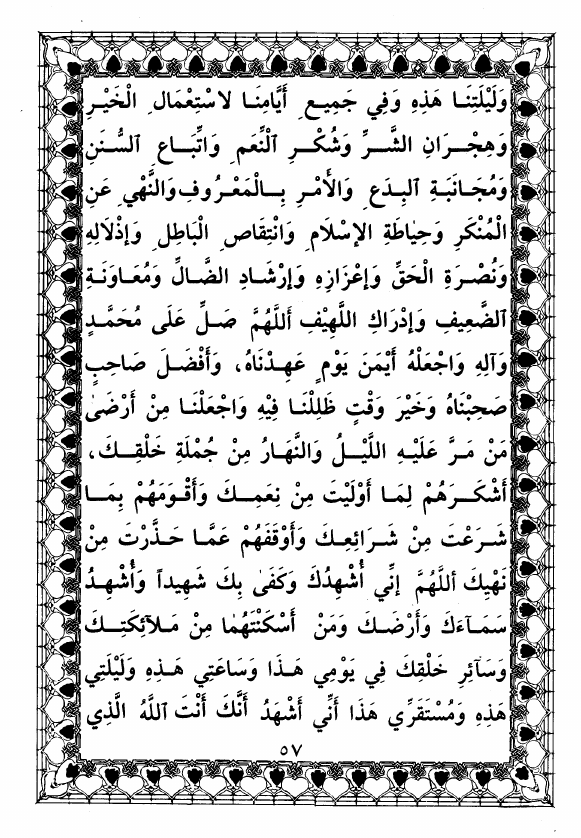 وَلَيْلَتِنَا هَذِهِ وَفِي جَمِيعِ أَيَّامِنَا لاسْتِعْمَالِ الْخَيْرِ
وَهِجْرَانِ الشَّرِّ وَشُكْرِ ٱلنِّعَمِ وَاتِّبَاعِ ٱلسُّنَنِ
وَمُجَانَبَةِ ٱلبِدَعِ وَالأَمْرِ بِالْمَعْرُوفِ وَالنَّهْيِ عَنِ
الْمُنْكَرِ وَحِيَاطَةِ الإِسْلَامِ وَانْتِقَاصِ الْبَاطِلِ وَإِذْلَالِهِ
وَنُصْرَةِ الْحَقِّ وَإِعْزَازِهِ وَإِرْشَادِ الضَّالِّ وَمُعَاوَنَةِ
ٱلضَّعِيفِ وَإِدْرَاكِ اللَّهِيْفِ أَللَّهُمَّ صَلِّ عَلَى مُحَمَّدٍ
وَآلِهِ وَاجْعَلْهُ أَيْمَنَ يَوْمٍ عَهِدْنَاهُ، وَأَفْضَلَ صَاحِبٍ
صَحِبْنَاهُ وَخَيْرَ وَقْتٍ ظَلِلْنَا فِيْهِ وَاجْعَلْنَا مِنْ أَرْضَىٰ
مَنْ مَرَّ عَلَيْهِ اللَّيْلُ وَالنَّهَارُ مِنْ جُمْلَةِ خَلْقِكَ،
أَشْكَرَهُمْ لِمَا أَوْلَيْتَ مِنْ نِعَمِكَ وَأَقْوَمَهُمْ بِمَا
شَرَعْتَ مِنْ شَرَائِعِكَ وَأَوْقَفَهُمْ عَمَّا حَذَّرْتَ مِنْ
نَهْيِكَ أَللَّهُمَّ إِنِّي أُشْهِدُكَ وَكَفَىٰ بِكَ شَهِيداً وَأُشْهِدُ
سَمَآءَكَ وَأَرْضَكَ وَمَنْ أَسْكَنْتَهُمَا مِنْ مَلآئِكَتِكَ
وَسَآئِرِ خَلْقِكَ فِي يَوْمِي هَذَا وَسَاعَتِي هَذِهِ وَلَيْلَتِي
هَذِهِ وَمُسْتَقَرِّي هَذَا أَنِّي أَشْهَدُ أَنَّكَ أَنْتَ ٱللَّهُ الَّذِي
٥٧